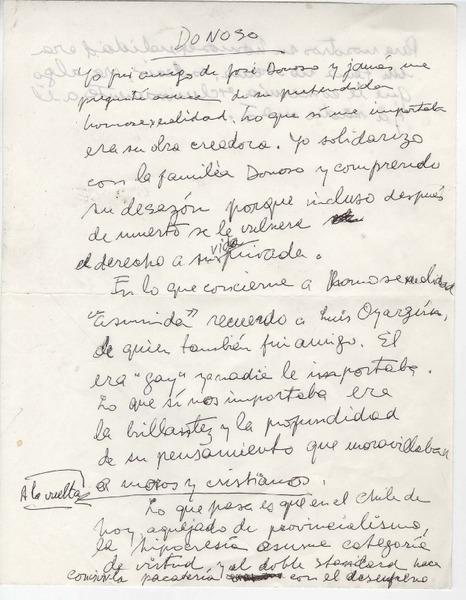 DONOSO
Yo fui amigo de José Donoso y jamás me
pregunté acerca de su pretendida
homosexualidad. Lo que sí me importaba
era su obra creadora. Yo solidarizo
con la familia Donoso y comprendo
su desazón porque incluso después
de muerto se le vulnera
el derecho a su vida privada.
En lo que concierne a homosexualidad
"asumida" recuerdo a Luis Oyarzún,
de quien también fui amigo. El
era "gay" y a nadie le importaba.
Lo que sí nos importaba era
la brillantez y la profundidad
de su pensamiento que maravillaban
a moros y cristianos.
A la vuelta
Lo que pasa es que en el Chile de
hoy aquejado de provincialismo,
la hipocresía asume categoría
de virtud y el doble standard hace
convivir la pacatería con el desenfreno